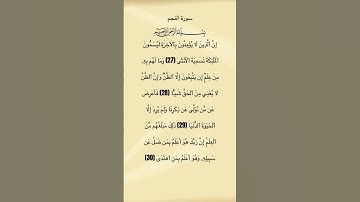 سورة النجم
بِسْمِ اللَّهِ الرَّحْمَٰنِ الرَّحِيمِ
إِنَّ الَّذِينَ لَا يُؤْمِنُونَ بِالْآخِرَةِ لَيُسَمُّونَ
الْمَلَائِكَةَ تَسْمِيَةَ الْأُنْثَىٰ (27) وَمَا لَهُمْ بِهِ
مِنْ عِلْمٍ إِنْ يَتَّبِعُونَ إِلَّا الظَّنَّ وَإِنَّ الظَّنَّ
لَا يُغْنِي مِنَ الْحَقِّ شَيْئًا (28) فَأَعْرِضْ
عَنْ مَنْ تَوَلَّىٰ عَنْ ذِكْرِنَا وَلَمْ يُرِدْ إِلَّا
الْحَيَوٰةَ الدُّنْيَا (29) ذَٰلِكَ مَبْلَغُهُمْ مِنَ
الْعِلْمِ إِنَّ رَبَّكَ هُوَ أَعْلَمُ بِمَنْ ضَلَّ عَنْ
سَبِيلِهِ وَهُوَ أَعْلَمُ بِمَنِ اهْتَدَىٰ (30)